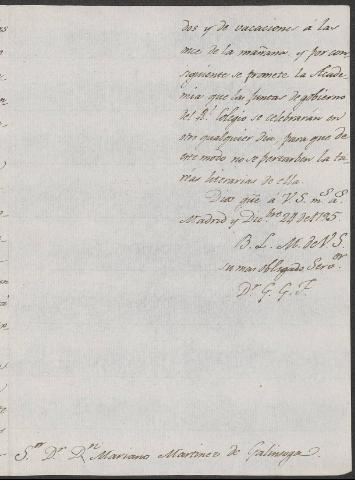 dos y de vacaciones á las
once de la mañana, y por con-
siguiente se promete la Acade-
mia que las juntas de gobierno
del Rl. Colegio se celebraran en
otro qualquier dia, para que de
este modo no se perturben las ta-
reas literarias de ella.
Dios gûe á V. S. ms. as.
Madrid y Dicbre 24 de 1795.
B. L. M. de V. S.
su mas obligado Servor
Dr. G. G. F.
Sor. Dr. Dn. Mariano Martinez de Galinsoga.